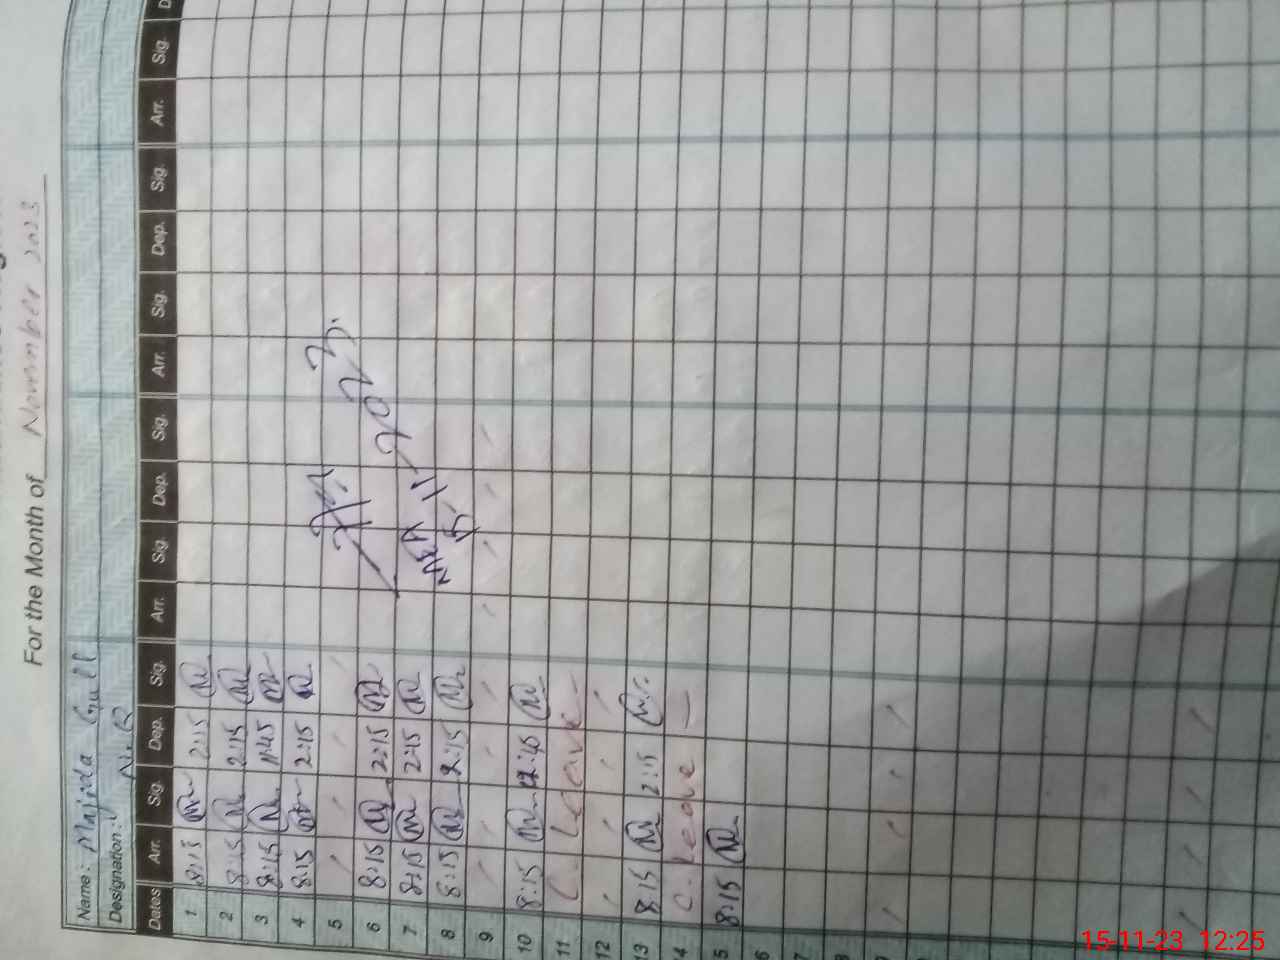 For the Month of November 2023
Name: Majida Gull
Designation:
Dates Arr. Sig. Dep. Sig. Arr. Sig. Dep. Sig. Arr. Sig. Dep. Sig. Arr. Sig. D
1 8:15 2:15
2 8:15 2:15
3 8:15 11:45
4 8:15 2:15
5
6 8:15 2:15
7 8:15 2:15
8 8:15 2:15
9
10 8:15 12:40
11 C. Leave
12
13 8:15 2:15
14 C. Leave
5 8:15
6
7
8
9
11 2023.
15-11-23 12:25